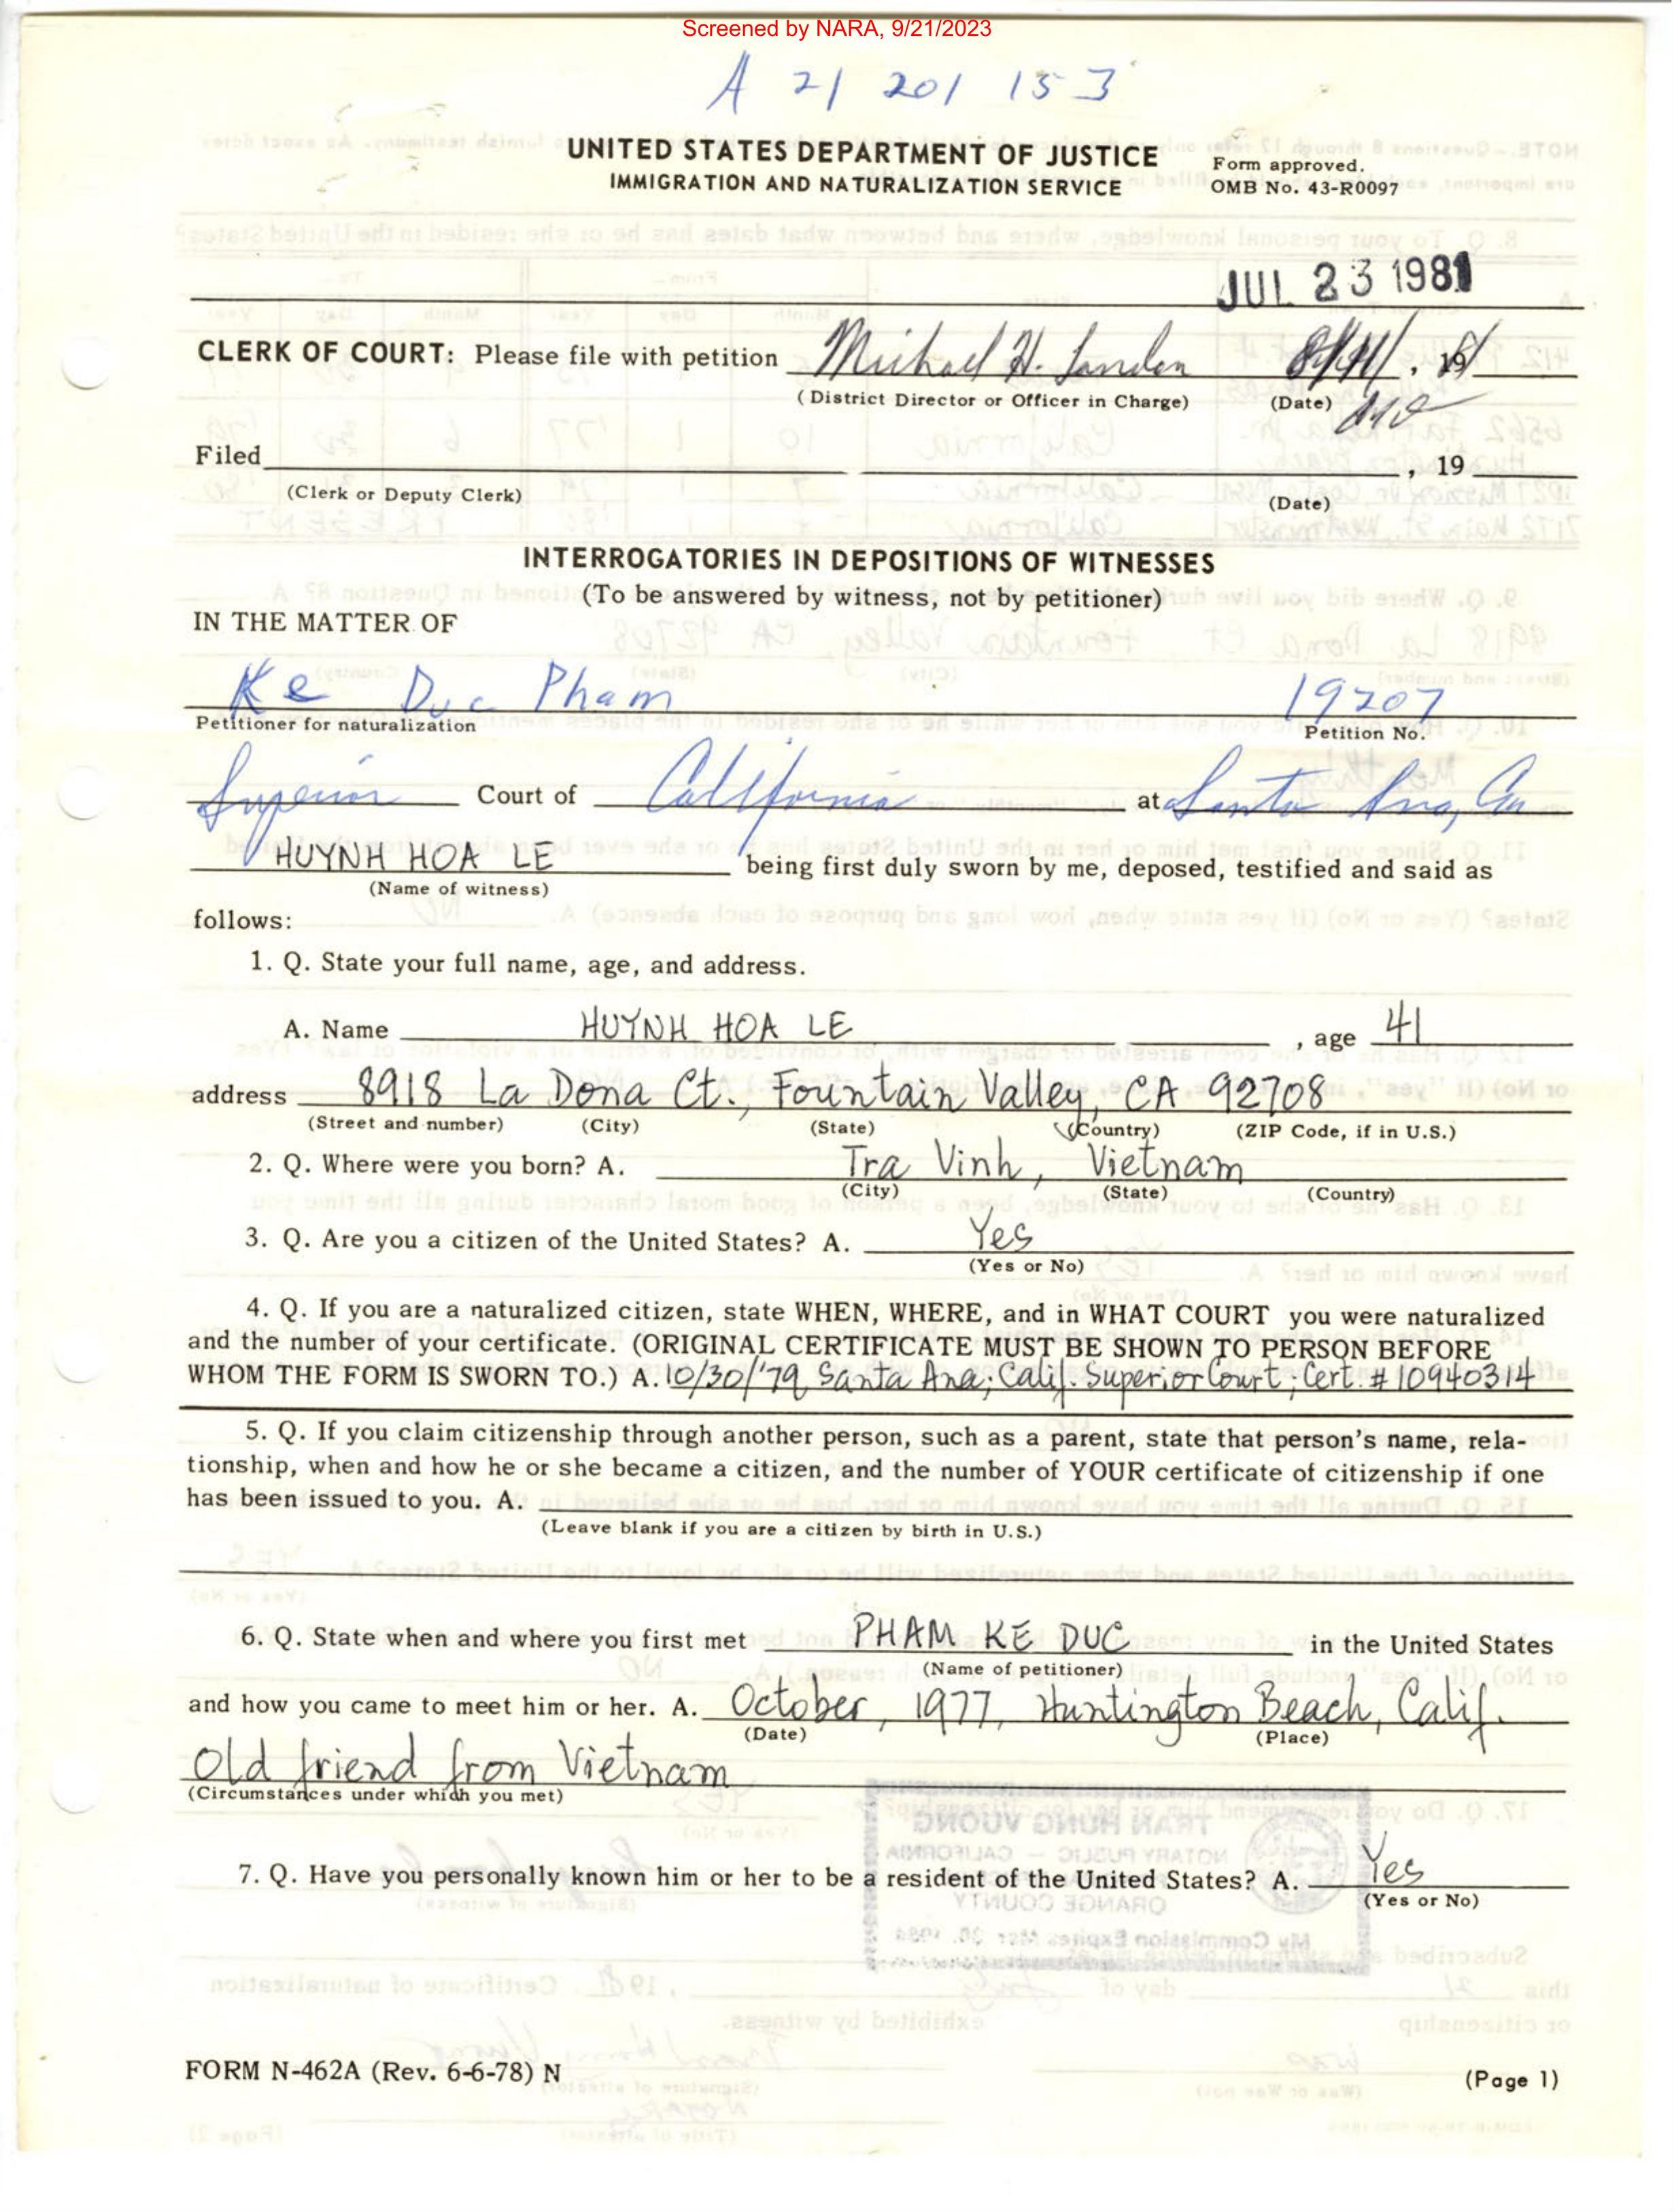 Screened by NARA, 9/21/2023
A 21 201 153
UNITED STATES DEPARTMENT OF JUSTICE
IMMIGRATION AND NATURALIZATION SERVICE
Form approved.
OMB No. 43-R0097
JUL 23 1981
CLERK OF COURT: Please file with petition Michael H. Landon , 19
(District Director or Officer in Charge) (Date)
Filed , 19
(Clerk or Deputy Clerk) (Date)
INTERROGATORIES IN DEPOSITIONS OF WITNESSES
(To be answered by witness, not by petitioner)
IN THE MATTER OF
Ke Duc Pham 19207
Petitioner for naturalization Petition No.
Superior Court of California at Santa Ana, Ca
HUYNH HOA LE being first duly sworn by me, deposed, testified and said as
(Name of witness)
follows:
1. Q. State your full name, age, and address.
A. Name HUYNH HOA LE , age 41
address 8918 La Dona Ct., Fountain Valley, CA 92708
(Street and number) (City) (State) (Country) (ZIP Code, if in U.S.)
2. Q. Where were you born? A. Tra Vinh, Vietnam
(City) (State) (Country)
3. Q. Are you a citizen of the United States? A. Yes
(Yes or No)
4. Q. If you are a naturalized citizen, state WHEN, WHERE, and in WHAT COURT you were naturalized
and the number of your certificate. (ORIGINAL CERTIFICATE MUST BE SHOWN TO PERSON BEFORE
WHOM THE FORM IS SWORN TO.) A. 10/30/'79 Santa Ana; Calif. Superior Court; Cert. # 10940314
5. Q. If you claim citizenship through another person, such as a parent, state that person's name, rela-
tionship, when and how he or she became a citizen, and the number of YOUR certificate of citizenship if one
has been issued to you. A.
(Leave blank if you are a citizen by birth in U.S.)
6. Q. State when and where you first met PHAM KE DUC in the United States
(Name of petitioner)
and how you came to meet him or her. A. October, 1977, Huntington Beach, Calif.
(Date) (Place)
Old friend from Vietnam
(Circumstances under which you met)
7. Q. Have you personally known him or her to be a resident of the United States? A. Yes
(Yes or No)
FORM N-462A (Rev. 6-6-78) N
(Page 1)